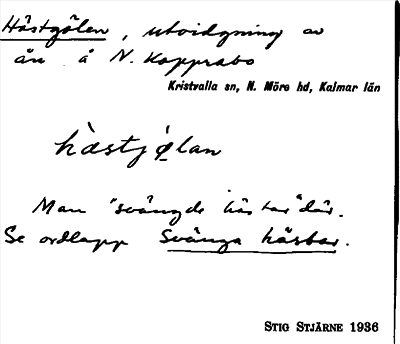 Hästgölen, utvidgning av
ån å N. Kopprabo
Kristvalla sn, N. Möre hd, Kalmar län
hàstjø̨lan
Man "svängde hästar" där.
Se ordlapp Svänga hästar.
STIG STJÄRNE 1936